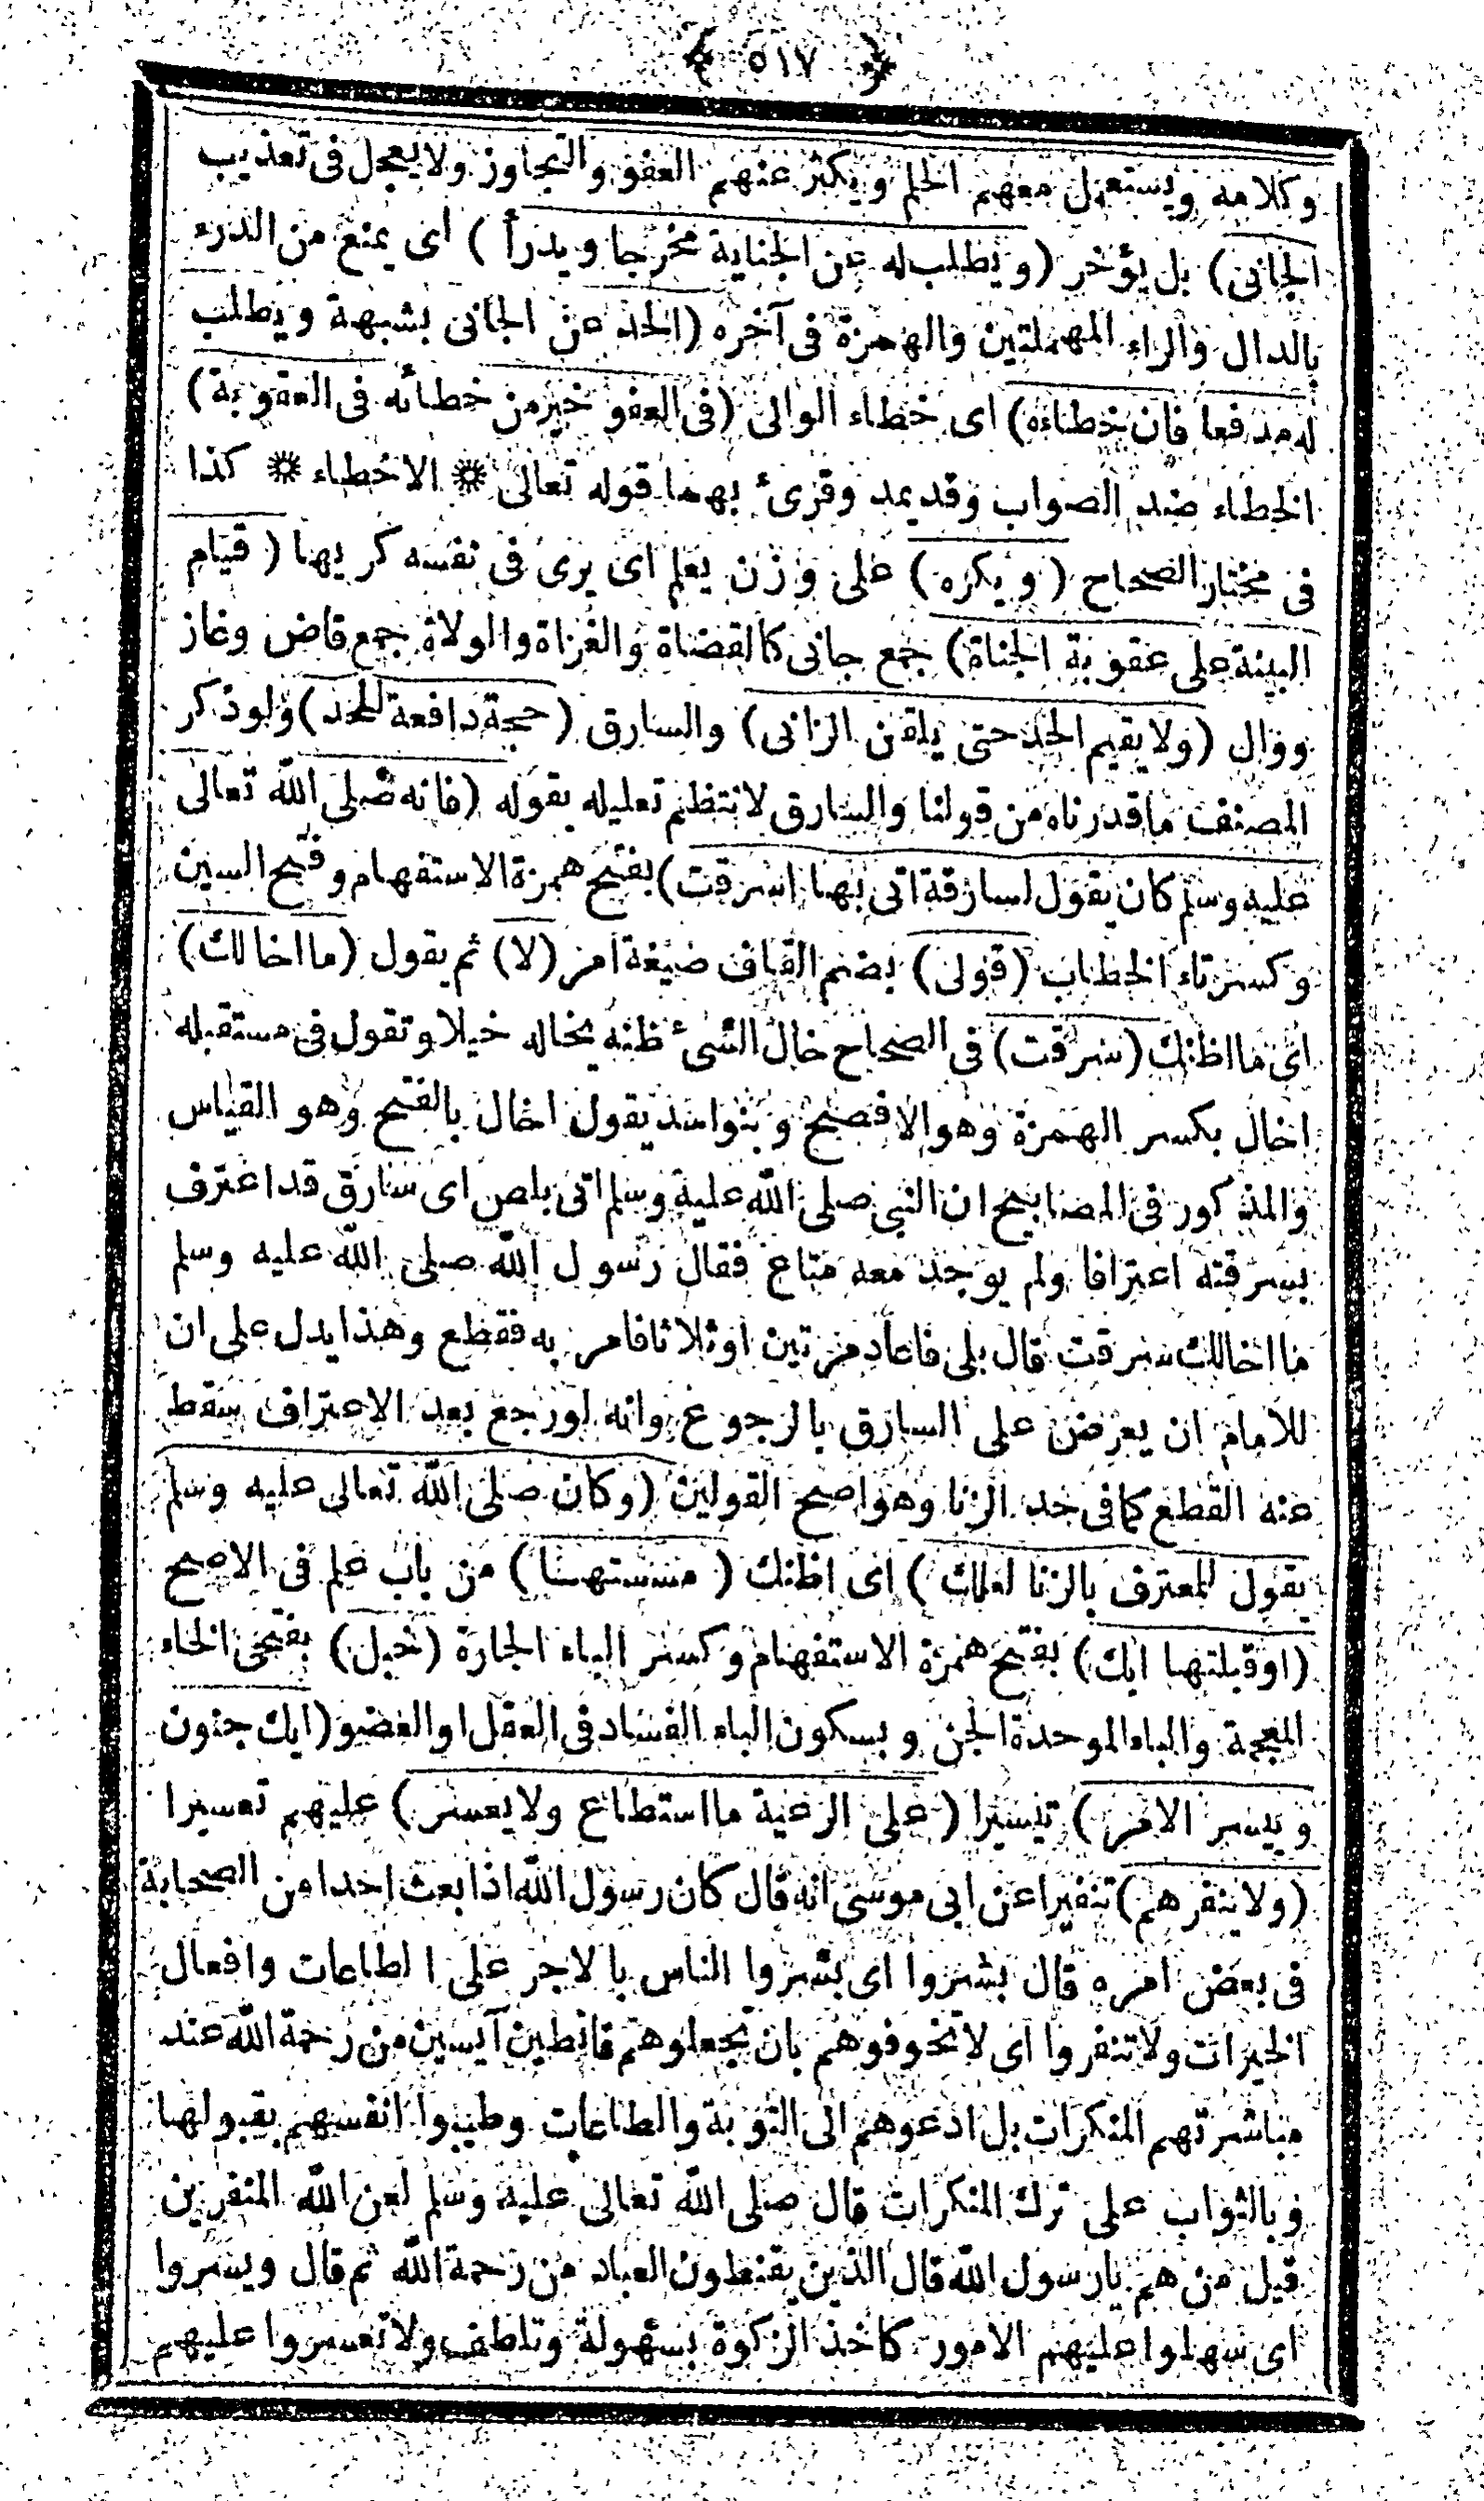 ﴿ ٥١٧ ﴾
وكلامه ويستعمل معهم الحلم ويكثر عنهم العفو والتجاوز ولا يعجل فى تعذيب
الجانى) بل يؤخر (ويطلب له عن الجناية مخرجا ويدرأ) اى يمنع من الدرء
بالدال والراء المهملتين والهمزة فى آخره (الحد عن الجانى بشبهة ويطلب
له مدفعا فان خطاءه) اى خطاء الوالى (فى العفو خير من خطائه فى العقوبة)
الخطاء ضد الصواب وقد يمد وقرئ بهما قوله تعالى * الا خطاء * كذا
فى مختار الصحاح (ويكره) على وزن يعلم اى يرى فى نفسه كريها (قيام
البينة على عقوبة الجناة) جمع جانى كالقضاة والغزاة والولاة جمع قاض وغاز
ووال (ولا يقيم الحد حتى يلقن الزانى) والسارق (حجة دافعة للحد) ولو ذكر
المصنف ما قدرناه من قولنا والسارق لانتظم تعليله بقوله (فانه صلى الله تعالى
عليه وسلم كان يقول لسارقة اتى بها اسرقت) بفتح همزة الاستفهام وفتح السين
وكسر تاء الخطاب (قولى) بضم القاف صيغة امر (لا) ثم يقول (ما اخالك)
اى ما اظنك (سرقت) فى الصحاح خال الشئ ظنه يخاله خيلا وتقول فى مستقبله
اخال بكسر الهمزة وهو الافصح وبنو اسد يقول اخال بالفتح وهو القياس
والمذكور فى المصابيح ان النبي صلى الله عليه وسلم اتى بلص اى سارق قد اعترف
بسرقته اعترافا ولم يوجد معه متاع فقال رسول الله صلى الله عليه وسلم
ما اخالك سرقت قال بلى فاعاد مرتين او ثلاثا فامر به فقطع وهذا يدل على ان
للامام ان يعرض على السارق بالرجوع وانه لو رجع بعد الاعتراف سقط
عنه القطع كما فى حد الزنا وهو اصح القولين (وكان صلى الله تعالى عليه وسلم
يقول للمعترف بالزنا لعلك) اى اظنك (مسستها) من باب علم فى الاصح
(او قبلتها ابك) بفتح همزة الاستفهام وكسر الباء الجارة (خبل) بفتحى الخاء
المعجمة والباء الموحدة الجن وبسكون الباء الفساد فى العقل او العضو (ابك جنون
وييسر الامر) تيسيرا (على الرعية ما استطاع ولا يعسر) عليهم تعسيرا
(ولا ينفرهم) تنفيرا عن ابى موسى انه قال كان رسول الله اذا بعث احدا من الصحابة
فى بعض امره قال بشروا اى بشروا الناس بالاجر على الطاعات وافعال
الخيرات ولا تنفروا اى لا تخوفوهم بان تجعلوهم قانطين آيسين من رحمة الله عند
مباشرتهم المنكرات بل ادعوهم الى التوبة والطاعات وطيبوا انفسهم بقبولها
وبالثواب على ترك المنكرات قال صلى الله تعالى عليه وسلم لعن الله المنفرين
قيل من هم يا رسول الله قال الذين يقنطون العباد من رحمة الله ثم قال ويسروا
اى سهلوا عليهم الامور كاخذ الزكوة بسهولة وتلطف ولا تعسروا عليهم